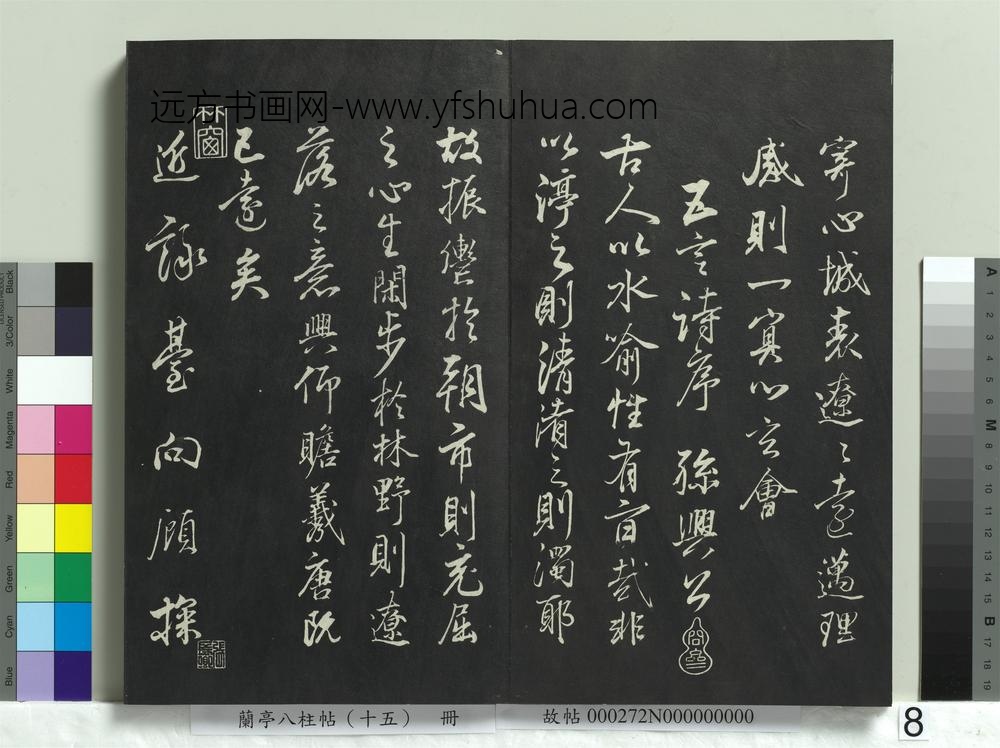 远方书画网-www.yfshuhua.com
寄心域表遼〻遠邁理
感則一冥心玄會
五言詩序 孫興公
古人以水喻性有旨哉非
以渟之則清淆之則濁耶
故振轡於朝市則充屈
之心生閑步於林野則遼
落之意興仰瞻羲唐既
已遠矣
近詠臺向顧探
蘭亭八柱帖（十五） 冊
故帖 000272N000000000
8
Black
3/Color
White
Magenta
Red
Yellow
Green
Cyan
Blue
A
1
2
3
4
5
6
M
8
9
10
11
12
13
14
15
B
17
18
19